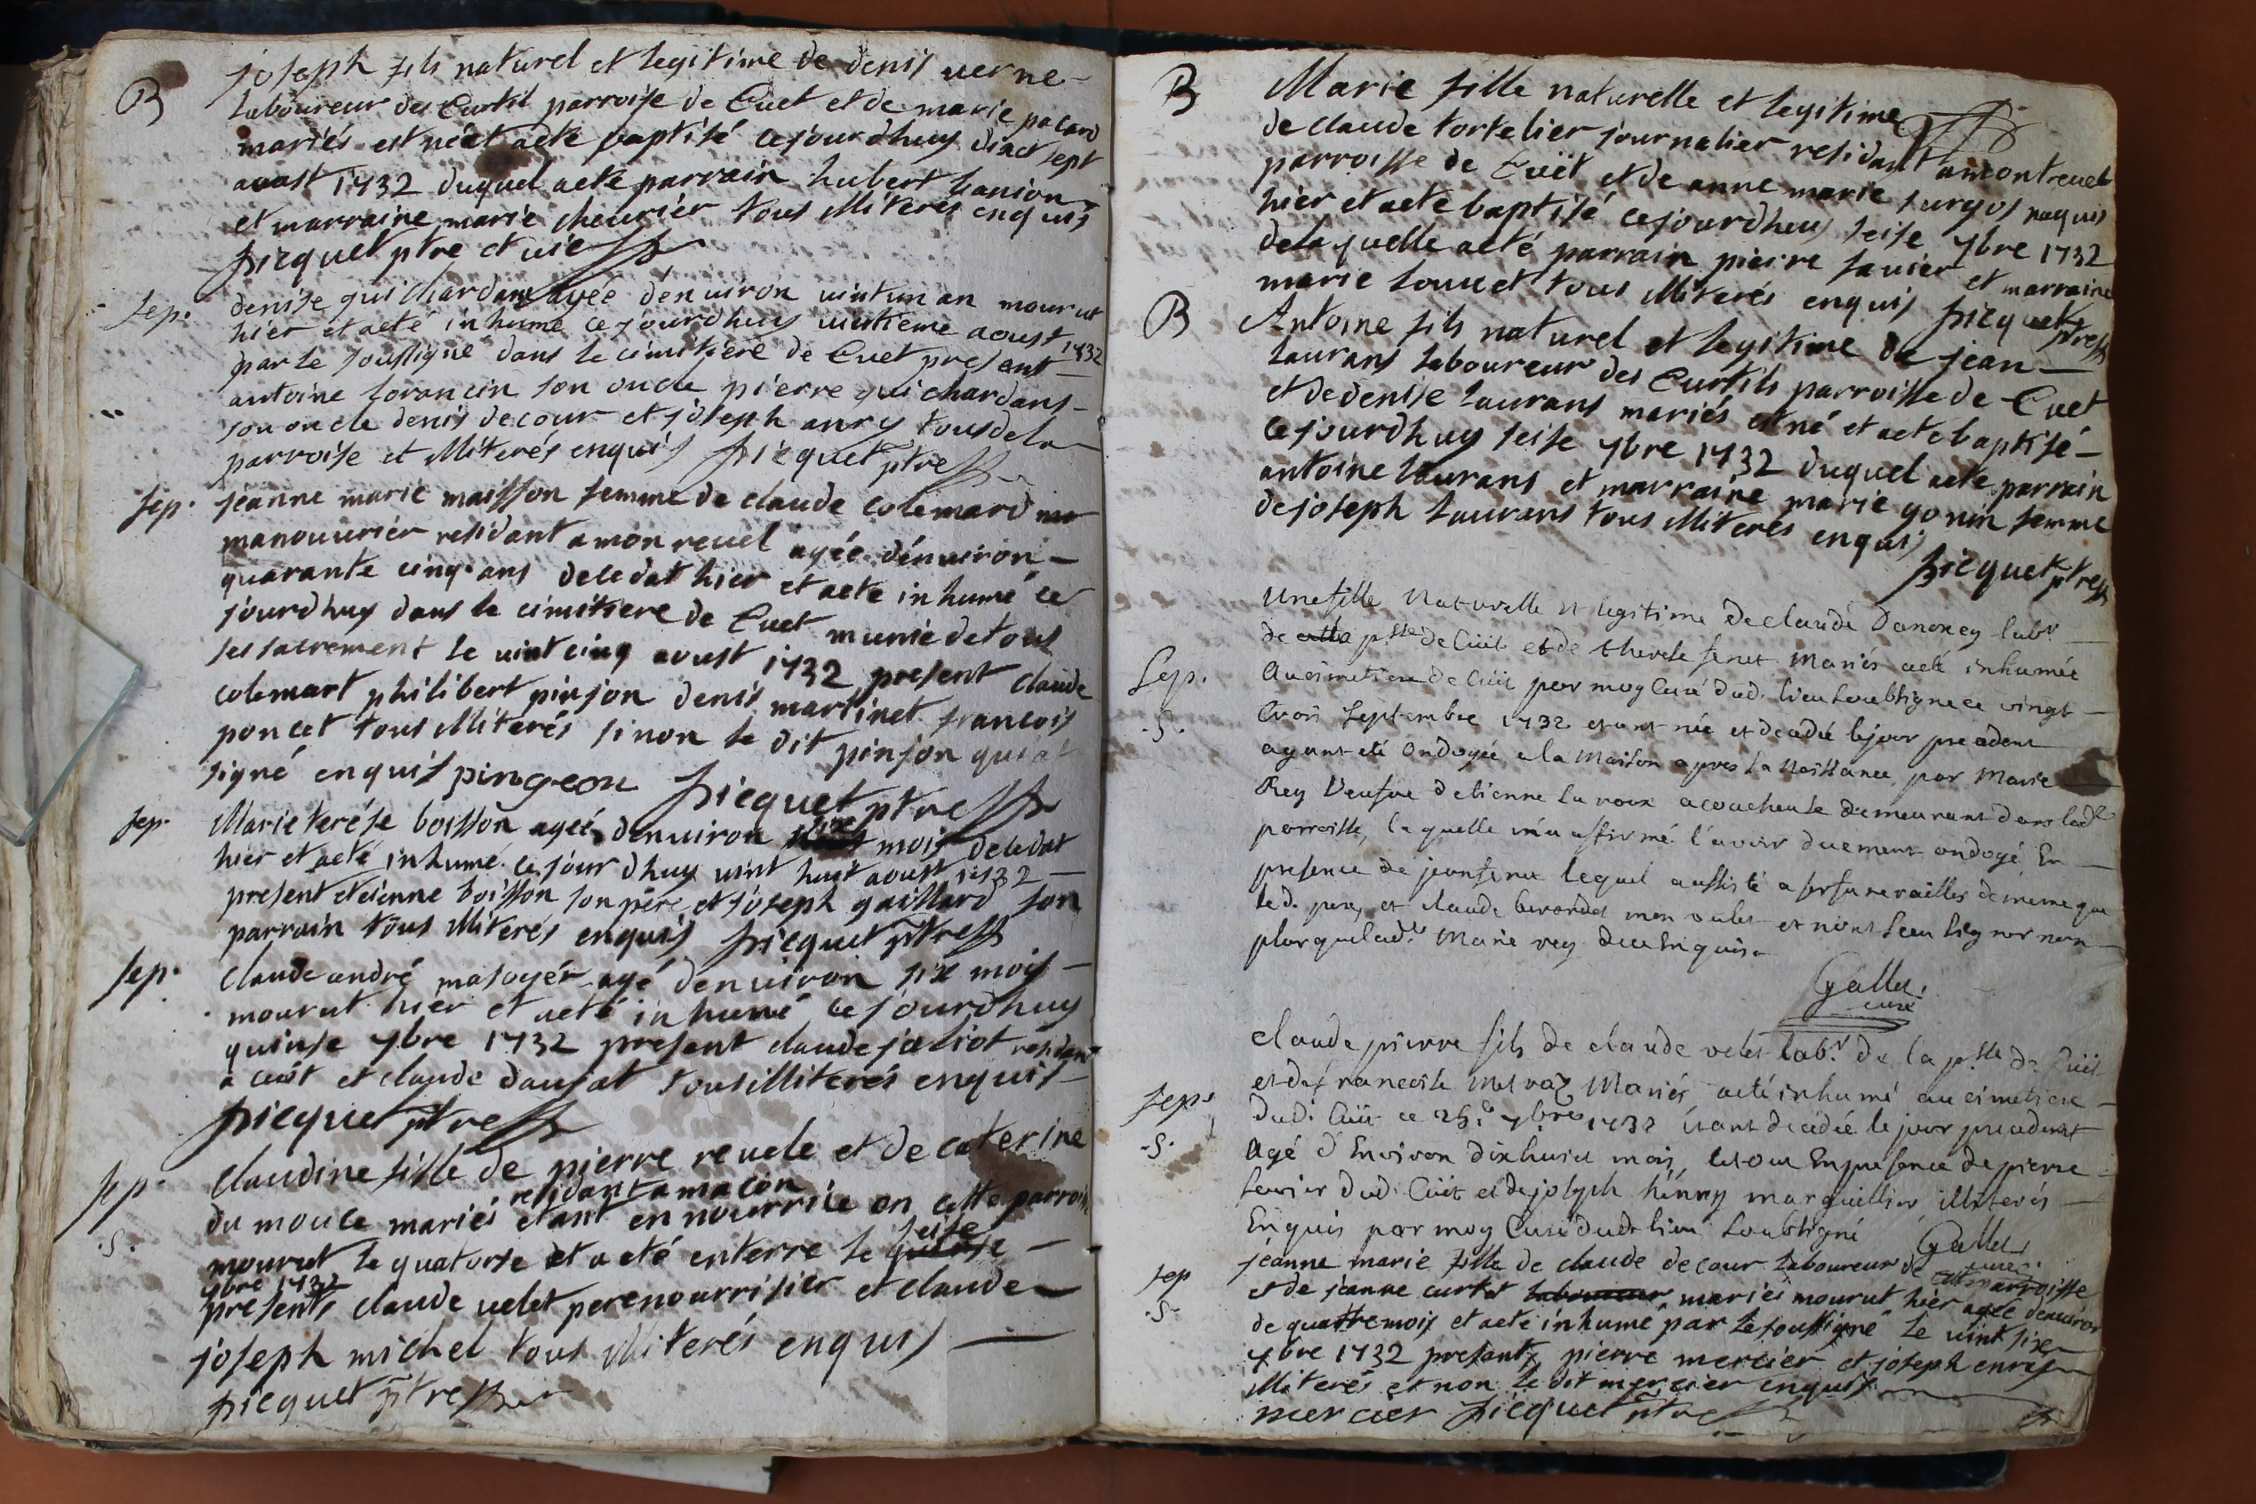 B
joseph fils naturel et legitime de denis uerne
laboureur des Curtil parroise de Cuet et de marie pacard
mariés est né et aeté baptisé cejourdhuy disct sept
aoust 1732 duquel aeté parrain hubert
et marraine marie cheurier tous illiterés enquis
picquet ptre et uic
sep.
denise guichardans agée denuiron uint un an mourut
hier et aeté inhumé cejourdhuy uintieme aoust 1732
par le soussigné dans le cimitiere de Cuet present
antoine son oncle pierre guichardans
son oncle denis decour et joseph anry tous dela
parroise et illiterés enquis picquet ptre
sep.
jeanne marie maisson femme de claude colemard
manouurier residant a monreuel agée denuiron
quarante cinq ans deledat hier et aeté inhumé ce
jourdhuy dans le cimitiere de Cuet munie de tous
ses sacrement le uint cinq aoust 1732 present claude
colemart philibert pinjon denis martinet francois
poncet tous illiterés sinon le dit pinjon qui at
signé enquis pingeon picquet ptre
sep.
Marie terése boisson ageé denuiron mois deledat
hier et aeté inhumé cejour dhuy uint huit aoust 1732
present etcienne boisson son pére et joseph gaillard son
parrain tous illiterés enquis picquet ptre
sep.
claude andré masoyér agé denuiron six mois
mourut hier et aeté inhumé cejourdhuy
quinse 7bre 1732 present claude joliot residant
a cuët et claude daujat tous illiterés enquis
picquet ptre
sep.
.S.
claudine fille de pierre reuele et de caterine
residant a macon
du mouce mariés etant en nourrice en cette parroisse
seise
mourut le quatorse et a eté enterre le
7bre 1732
presents claude uelet perenourrisier et claude
joseph michel tous illiterés enquis
picquet ptre
B
Marie fille naturelle et legitime
de claude tortelier journalier residant a montreuel
parroisse de Cuët et de anne marie naquis
hier et aeté baptisé cejourdhuy seise 7bre 1732
dela quelle aeté parrain pierre sauier et marraine
marie louuet tous illiterés enquis picquet
ptre
B
Antoine fils naturel et legitime de jean
laurans laboureur des Curtils parroisse de Cuet
et de denise laurans mariés est né et aeté baptisé
cejourdhuy seise 7bre 1732 duquel aeté parrain
antoine laurans et marraine marie gonin femme
de joseph laurans tous illiterés enquis
picquet ptre
Sep.
.S.
Une fille naturelle et legitime de claude Donorey labr.
de psse de Cuët et de therese feret Mariés aeté inhumée
au cimetiere de Cuët par moy Curé dud. lieu soubsigné ce vingt
trois Septembre 1732 etant née et decedée le jour precedent
ayant eté ondoyée a la Maison apres sa Naissance par Marie
Rey Veufve detienne la roux acoucheuse demeurant dans lade
parroisse, laquelle m'a affirmé l'avoir duement ondoyé En
presence de jean feret lequel a assisté a ses funerailles de meme que
led. pere, et claude berardet mon valet et n'ont sceu signer non
plus que lade. Marie rey deue Enquise
Gallet
curé
Sep.
.S.
claude pierre fils de claude velet labr. de la psse de Cuët
et de francoise Mariés aeté inhumé au cimetiere
dud. Cuët ce 25.e 7bre 1732 etant decedée le jour precedent
agé d'Environ dixhuict mois, letout En presence de pierre
sevrier dud. Cuët et de joseph hénry marguillier illiterés
Enquis par moy Curé dudt. lieu soubsigné Gallet
curé.
sep
.S.
jeanne marie fille de claude decour laboureur de cette parroisse
et de jeanne curtet laboureur mariés mourut hier agée denuiron
de quattre mois et aeté inhumé par le soussigné le uint six
7bre 1732 presants pierre mercier et joseph enry
illiterés et non le dit mercier enquis
mercier picquet ptre